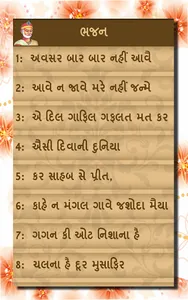 ભજન
1: અવસર બાર બાર નહીં આવૈ
2: આવે ન જાવે મરે નહીં જન્મે
3: એ દિલ ગાફિલ ગફલત મત કર
4: ઐસી દિવાની દુનિયા
5: કર સાહબ સે પ્રીત,
6: કાહે ન મંગલ ગાવે જશોદા મૈયા
7: ગગન કી ઓટ નિશાના હૈ
8: ચલના હૈ દૂર મુસાફિર